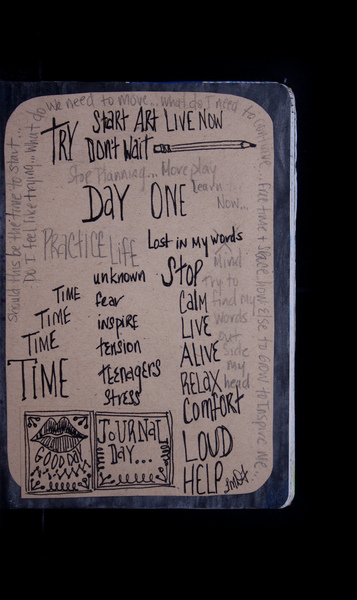 we need to move... what do I need to
Should this be the time to start...
Do I feel like trying... what do
free time + space how else to grow to inspire me..
TRY Start Art Live Now
Don't Wait
Stop Planning... More play
Learn
Now...
DAY ONE
PRACTICE LIFE
Lost in My words
Mind
try to
find my
words
out
side
my
head
unknown
fear
inspire
tension
teenagers
stress
TIME
TIME
TIME
TIME
STOP
CALM
LIVE
ALIVE
RELAX
COMFORT
LOUD
HELP
GOOD DAY
JOURNAL
DAY...